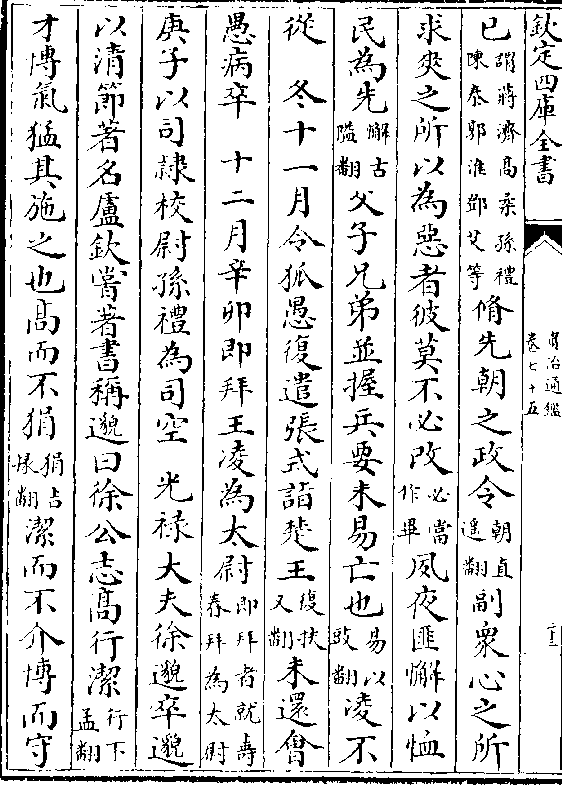 欽定四庫全書
資治通鑑
卷七十五
十三
已謂蔣濟高柔孫禮陳泰郭淮鄧艾等脩先朝之政令朝直遥翻副衆心之所
求爽之所以為惡者彼莫不必改必當作畢夙夜匪懈以恤
民為先懈古隘翻父子兄弟並握兵要未易亡也易以豉翻凌不
從 冬十一月令狐愚復遣張式詣楚王復扶又翻未還會
愚病卒 十二月辛卯即拜王凌為太尉即拜者就壽春拜為太尉
庚子以司隸校尉孫禮為司空 光禄大夫徐邈卒邈
以清節著名盧欽嘗著書稱邈曰徐公志高行潔行下孟翻
才博氣猛其施之也高而不狷狷吉掾翻潔而不介博而守